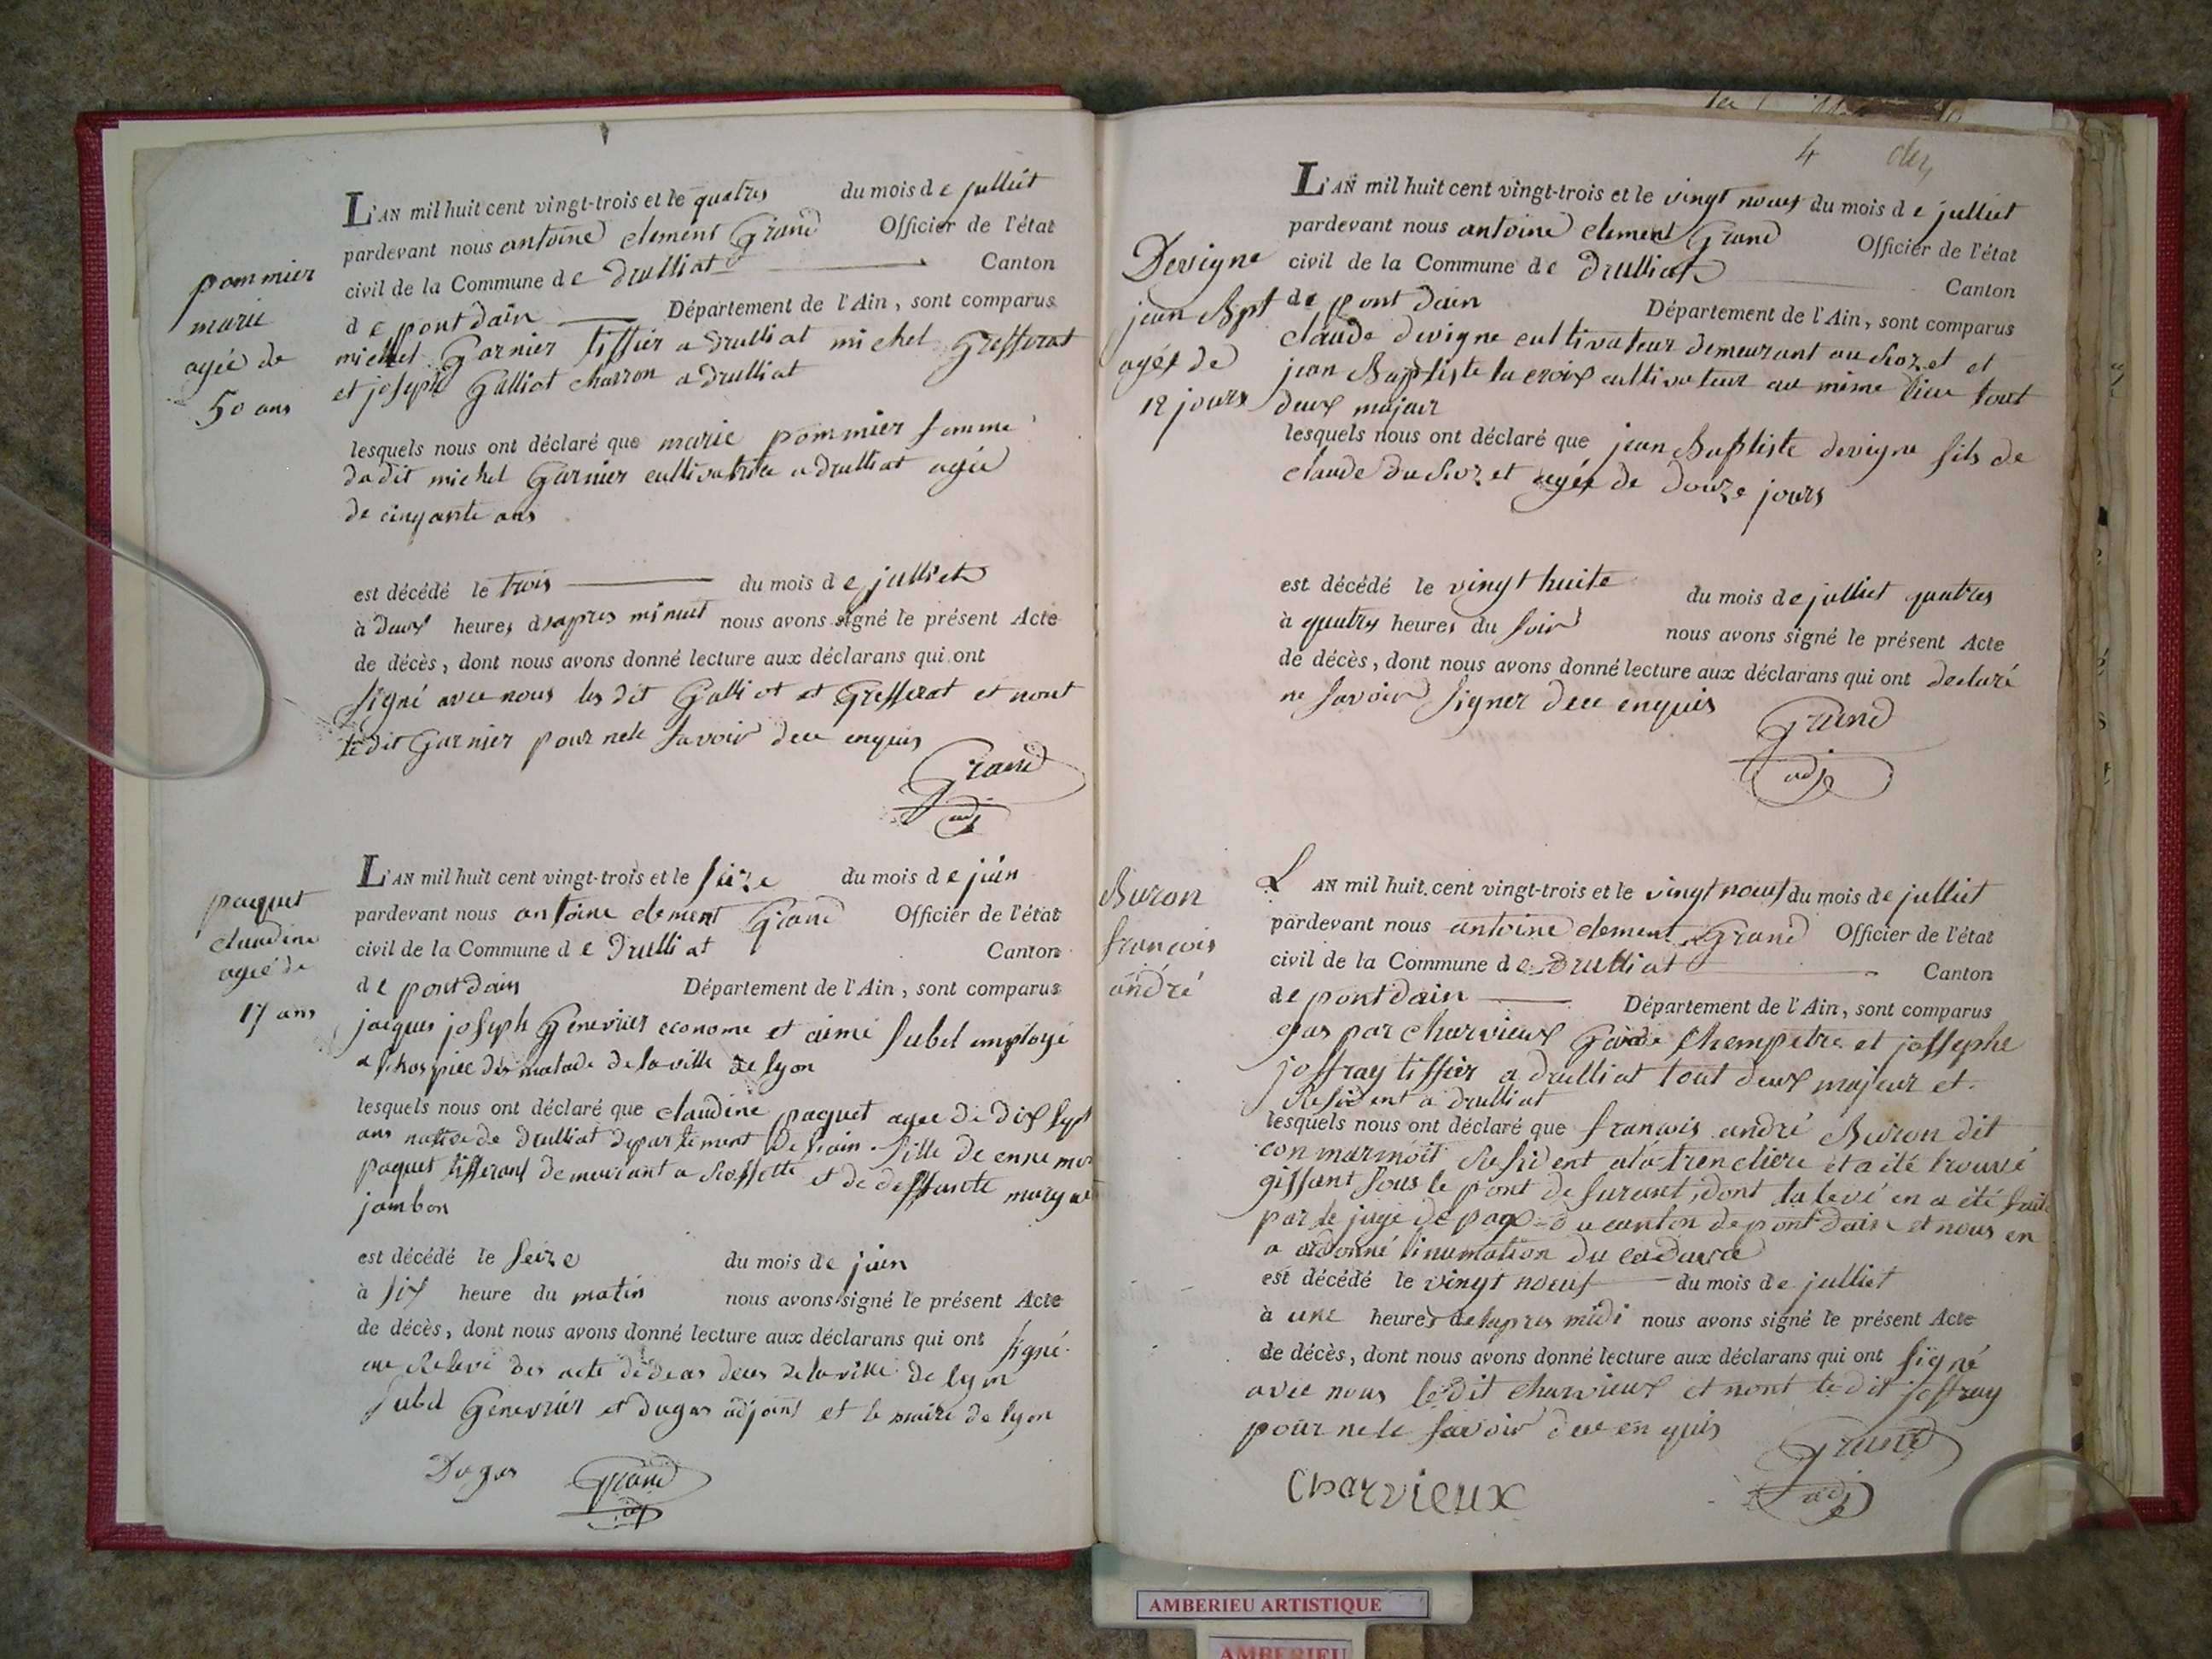 pommier
marie
agée de
50 ans
L'AN mil huit cent vingt-trois et le quatres du mois de julliet
pardevant nous antoine clement Grand Officier de l'état
civil de la Commune de Drulliat Canton
de pont dain Département de l'Ain, sont comparus
michel Garnier tissier a drulliat michel Grefferat
et joseph Galliot charron a drulliat
lesquels nous ont déclaré que marie pommier femme
du dit michel Garnier cultivatrice a drulliat agée
de cinqante ans
est décédé le trois du mois de julliet
à deux heures dapres minuit nous avons signé le présent Acte
de décès, dont nous avons donné lecture aux déclarans qui ont
signé avec nous les dit Galliot et Grefferat et nont
le dit Garnier pour nele savoir deu enquis
Grand
adj
paquet
claudine
ageé de
17 ans
L'AN mil huit cent vingt-trois et le seize du mois de juin
pardevant nous antoine clement Grand Officier de l'état
civil de la Commune de Drulliat Canton
de pont dain Département de l'Ain, sont comparus
jacques joseph Genevrier econome et aimé Subel employé
a lhospice des malade de la ville de lyon
lesquels nous ont déclaré que claudine paquet agee de dix sept
ans native de drulliat departement de lain fille de
paquet demeurant a et de deffante
jambon
est décédé le seize du mois de juin
à six heure du matin nous avons signé le présent Acte
de décès, dont nous avons donné lecture aux déclarans qui ont signé
au Relevé des acte de la ville de lyon
Subel Genevrier et dugas adjoint et le maire de lyon
Dugas Grand
adj
4
Devigne
jean Bpt
agét de
12 jours
L'AN mil huit cent vingt-trois et le vingt noeuf du mois de julliet
pardevant nous antoine clement Grand Officier de l'état
civil de la Commune de Drulliat Canton
de pont dain Département de l'Ain, sont comparus
claude devigne cultivateur demeurant au et
jean Baptiste la croix cultivateur au même lieu tout
deux majeur
lesquels nous ont déclaré que jean Baptiste devigne fils de
claude du agée de douze jours
est décédé le vingt huite du mois de julliet quatres
à quatres heures du soir nous avons signé le présent Acte
de décès, dont nous avons donné lecture aux déclarans qui ont declaré
ne savoir signer deu enquis
Grand
adj
Buron
francois
andré
L AN mil huit cent vingt-trois et le vingt noeuf du mois de julliet
pardevant nous antoine clement Grand Officier de l'état
civil de la Commune de Drulliat Canton
de pont dain Département de l'Ain, sont comparus
charvieux Garde Champetre et jossephe
joffray tissier a drulliat tout deux majeur et
Resident a drulliat
lesquels nous ont déclaré que francois andré Buron dit
Resident a la trencliere et a été trouvé
gissant sous le pont de surant, dont la levé en a été faite
par le juge de paox du canton de pont dain et nous en
a ordonné linumation du cadavre
est décédé le vingt noeuf du mois de julliet
à une heures delapres midi nous avons signé le présent Acte
de décès, dont nous avons donné lecture aux déclarans qui ont signé
avec nous le dit charvieux et nont le dit joffray
pour nele savoir deu en quis
Grand
adj
Charvieux
AMBERIEU ARTISTIQUE
AMBERIEU